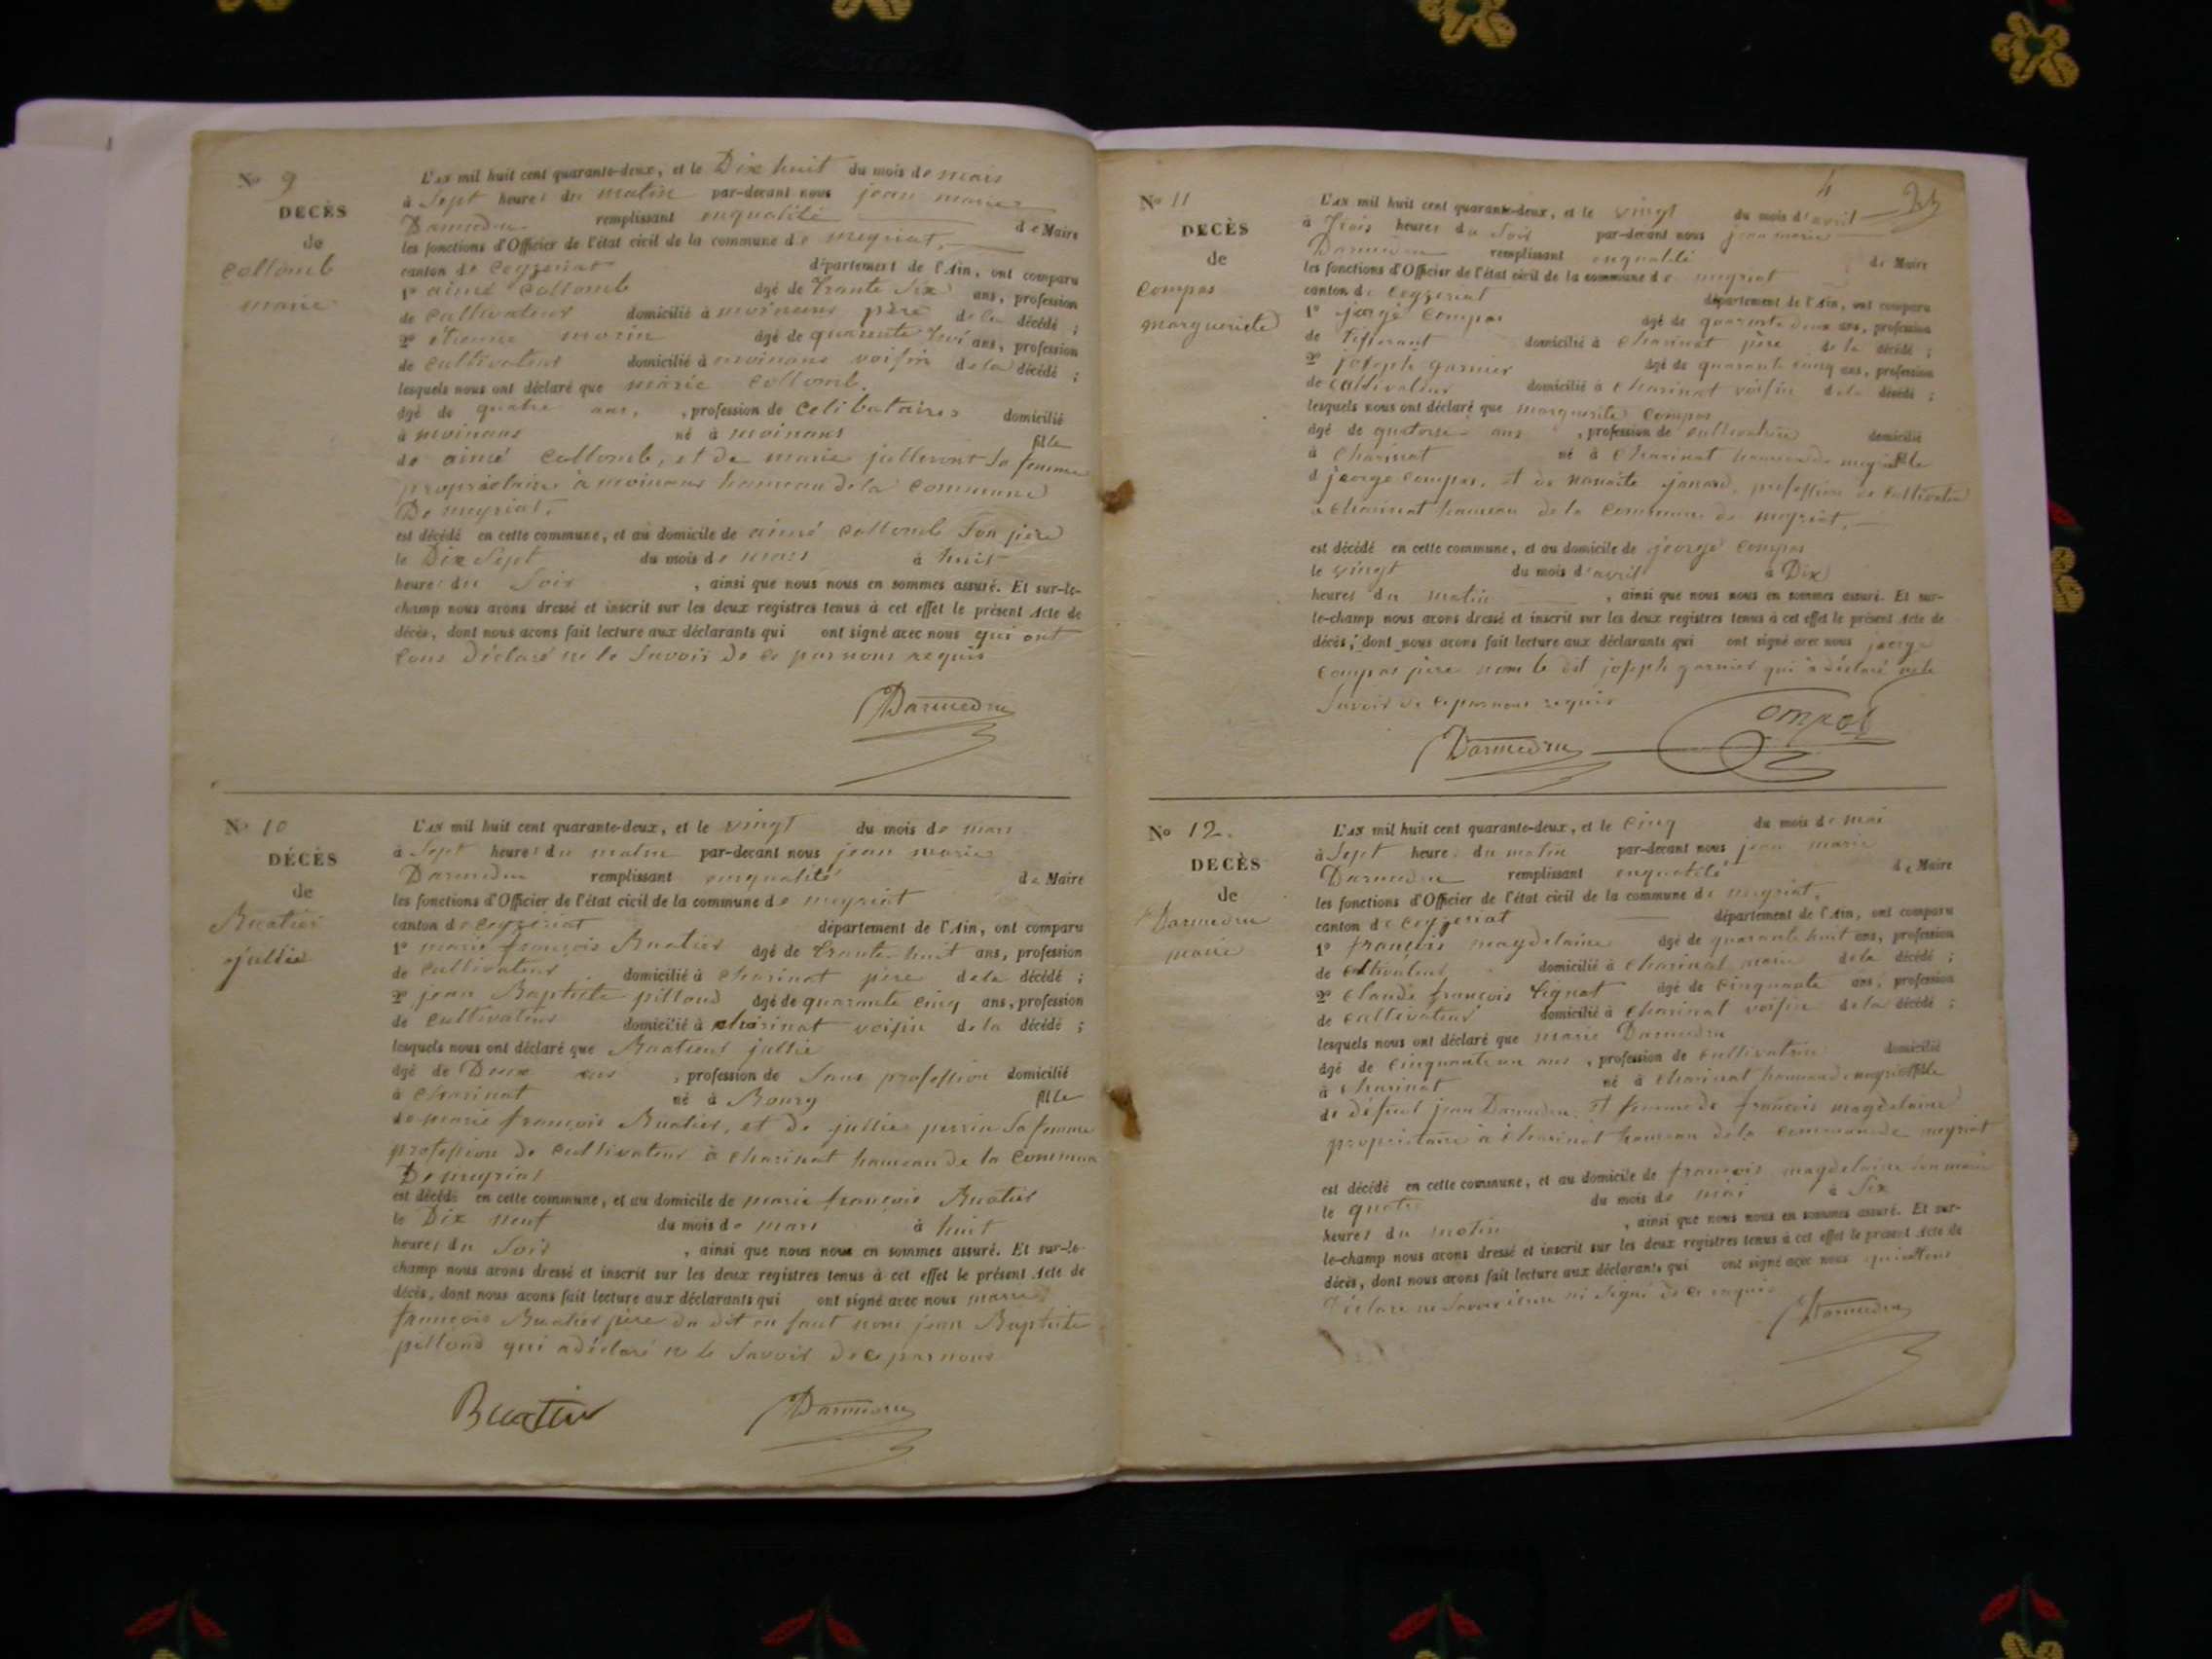 No 9
DECÈS
de
Collomb
marie
L'AN mil huit cent quarante-deux, et le Dix huit du mois de mars
à Sept heures du matin par-devant nous jean marie
Darmedru remplissant enqualité de Maire
les fonctions d'Officier de l'état civil de la commune de meyriat,
canton de Ceyzeriat département de l'Ain, ont comparu
1º aimé Collomb âgé de trante Six ans, profession
de Cultivateur domicilié à moinans père de la décédé ;
2º étienne morin âgé de quarente ans, profession
de Cultivateur domicilié à moinans voisin de la décédé ;
lesquels nous ont déclaré que marie Collomb,
âgé de quatre ans, , profession de Celibataire domicilié
à moinans né à moinans fille
de aimé Collomb, et de marie sa femme
propriétaire à moinans hameau de la Commune
De meyriat,
est décédé en cette commune, et au domicile de aimé Collomb Son père
le Dix Sept du mois de mars à huit
heures du Soir , ainsi que nous nous en sommes assuré. Et sur-le-
champ nous avons dressé et inscrit sur les deux registres tenus à cet effet le présent Acte de
décès, dont nous avons fait lecture aux déclarants qui ont signé avec nous qui ont
tous déclaré ne le Savoir de ce par nous requis
Darmedru
No 10
DÉCÈS
de
Buatier
jullie
L'AN mil huit cent quarante-deux, et le vingt du mois de mars
à Sept heures du matin par-devant nous jean marie
Darmedru remplissant enqualité de Maire
les fonctions d'Officier de l'état civil de la commune de meyriat
canton de Ceyzériat département de l'Ain, ont comparu
1º marie françois Buatier âgé de trante-huit ans, profession
de Cultivateur domicilié à Charinat père de la décédé ;
2º jean Baptiste pilloud âgé de quarante Cinq ans, profession
de Cultivateur domicilié à Charinat voisin de la décédé ;
lesquels nous ont déclaré que Buatier jullie
âgé de Deux ans , profession de Sans profession domicilié
à Charinat né à Bourg fille
de marie françois Buatier, et de jullie perrin Sa femme
profession de Cultivateur à Charinat hameau de la Commun
De meyriat
est décédé en cette commune, et au domicile de marie françois Buatier
le Dix neuf du mois de mars à huit
heures du Soir , ainsi que nous nous en sommes assuré. Et sur-le-
champ nous avons dressé et inscrit sur les deux registres tenus à cet effet le présent Acte de
décès, dont nous avons fait lecture aux déclarants qui ont signé avec nous marie
françois Buatier père du dit enfant non jean Baptiste
pilloud qui a déclaré ne le Savoir de ce par nous
Buatier Darmedru
4
No 11
DECÈS
de
Compas
marguerite
L'AN mil huit cent quarante-deux, et le vingt du mois d'avril
à Trois heures du Soir par-devant nous jean marie
Darmedru remplissant enqualité de Maire
les fonctions d'Officier de l'état civil de la commune de meyriat
canton de Ceyzeriat département de l'Ain, ont comparu
1º jeorge Compas âgé de quarente deux ans, profession
de Tisserant domicilié à Charinat père de la décédé ;
2º joseph garnier âgé de quarante cinq ans, profession
de Cultivateur domicilié à Charinat voisin de la décédé ;
lesquels nous ont déclaré que marguerite Compas
âgé de quatorze ans , profession de cultivatrice domicilié
à Charinat né à Charinat hameau de meyriat fille
d jeorge Compas, et de profession de Cultivateur
a Charinat hameau de la Commune de meyriat,
est décédé en cette commune, et au domicile de jeorge Compas
le vingt du mois d'avril à Dix
heures du matin , ainsi que nous nous en sommes assuré. Et sur-
le-champ nous avons dressé et inscrit sur les deux registres tenus à cet effet le présent Acte de
décès, dont nous avons fait lecture aux déclarants qui ont signé avec nous jeorge
Compas père non le dit joseph garnier qui a déclaré ne le
Savoir de ce par nous requis
Darmedru Compas
No 12.
DECÈS
de
Darmedru
marie
L'AN mil huit cent quarante-deux, et le Cinq du mois de mai
à Sept heures du matin par-devant nous jean marie
Darmedru remplissant enqualité de Maire
les fonctions d'Officier de l'état civil de la commune de meyriat,
canton de Ceyzeriat département de l'Ain, ont comparu
1º françois magdelaine âgé de quarante huit ans, profession
de Cultivateur domicilié à Charinat marie de la décédé ;
2º Claude françois âgé de Cinquante ans, profession
de Cultivateur domicilié à Charinat voisin de la décédé ;
lesquels nous ont déclaré que marie Darmedru
âgé de Cinquante un ans , profession de Cultivatrice domicilié
à Charinat né à Charinat hameau de meyriat fille
de défunt jean Darmedru, et femme de françois magdelaine
propriétaire à Charinat hameau de la Commune de meyriat
est décédé en cette commune, et au domicile de françois magdelaine son marie
le quatre du mois de mai à Six
heures du matin , ainsi que nous nous en sommes assuré. Et sur-
le-champ nous avons dressé et inscrit sur les deux registres tenus à cet effet le présent Acte de
décès, dont nous avons fait lecture aux déclarants qui ont signé avec nous
déclaré ne Savoir écrire ni Signé de ce requis
Darmedru